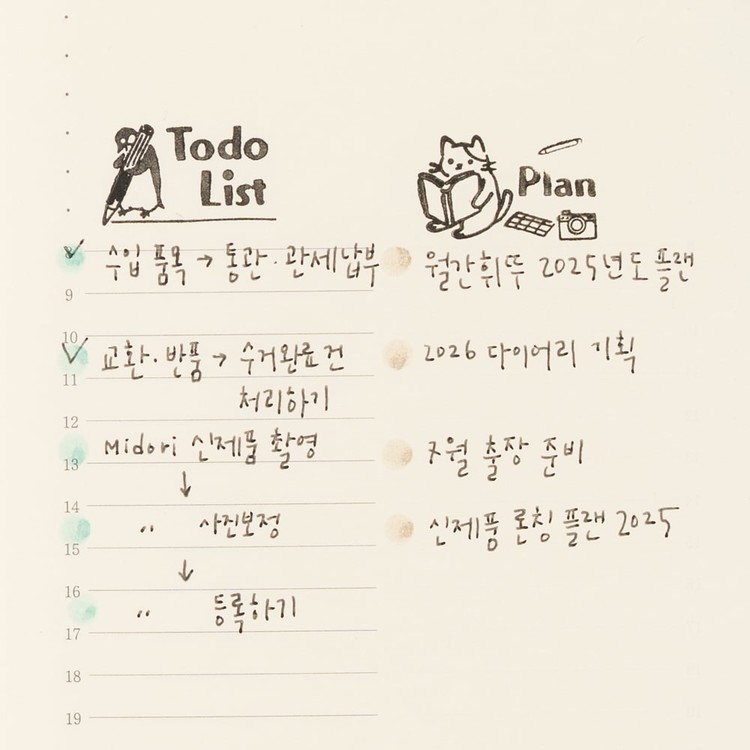 Todo
List
8
수입 품목 → 통관·관세납부
9
10
교환·반품 → 수거완료건
11
처리하기
12
Midori 신제품 촬영
13
↓
14
〃 사진보정
15
↓
16
〃 등록하기
17
18
19
Plan
월간휘뚜 2025년도 플랜
2026 다이어리 기획
7월 출장 준비
신제품 론칭 플랜 2025